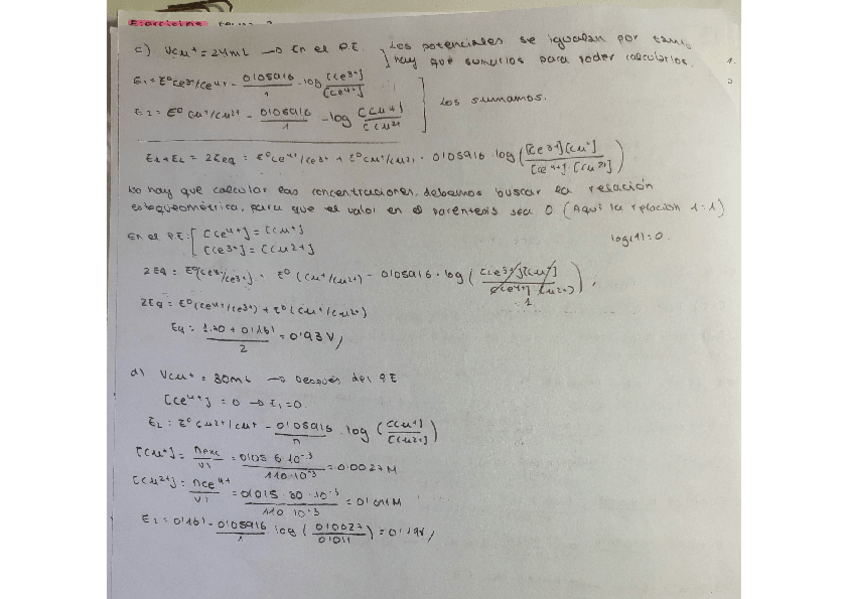 Ejercicios tema
c) Vcu⁺ = 24mL → En el P.E. Los potenciales se igualan por tanto
hay que sumarlos para poder calcularlos.
E₁ = E⁰ce³⁺/ce⁴⁺ - 0'05916/1 · log [ce³⁺]/[ce⁴⁺]
Los sumamos.
E₂ = E⁰ cu⁺/cu²⁺ - 0'05916/1 · log [cu⁺]/[cu²⁺]
E₁+E₂ = 2Eeq = E⁰ce⁴⁺/ce³⁺ + E⁰cu⁺/cu²⁺ · 0'05916 · log ([ce³⁺][cu⁺]/[ce⁴⁺]·[cu²⁺])
No hay que calcular las concentraciones, debemos buscar la relación
estequeométrica, para que el valor en el paréntesis sea 0 (Aquí la relación 1=1)
En el P.E: [ce⁴⁺] = [cu⁺]
log(1)=0.
[ce³⁺] = [cu²⁺]
2Eq = E⁰(ce⁴⁺/ce³⁺) - E⁰ (cu⁺/cu²⁺) - 0'05916 · log ([ce³⁺][cu⁺]/[ce⁴⁺][cu²⁺])
1
2Eq = E⁰(ce⁴⁺/ce³⁺) + E⁰(cu⁺/cu²⁺)
Eq = 1.70 + 0'161/2 = 0'93 V
d) Vcu⁺ = 30mL → Después del P.E
[ce⁴⁺] = 0 → E₁=0.
E₂ = E⁰ cu²⁺/cu⁺ - 0'05916/n · log ([cu⁺]/[cu²⁺])
[cu⁺] = nexc/VT = 0'05·6·10⁻³/110·10⁻³ = 0.0027 M
[cu²⁺] = nce⁴⁺/VT = 0'015·80·10⁻³/110·10⁻³ = 0'011M
E₂ = 0'161 - 0'05916/1 log (0'0027/0'011) = 0'19V